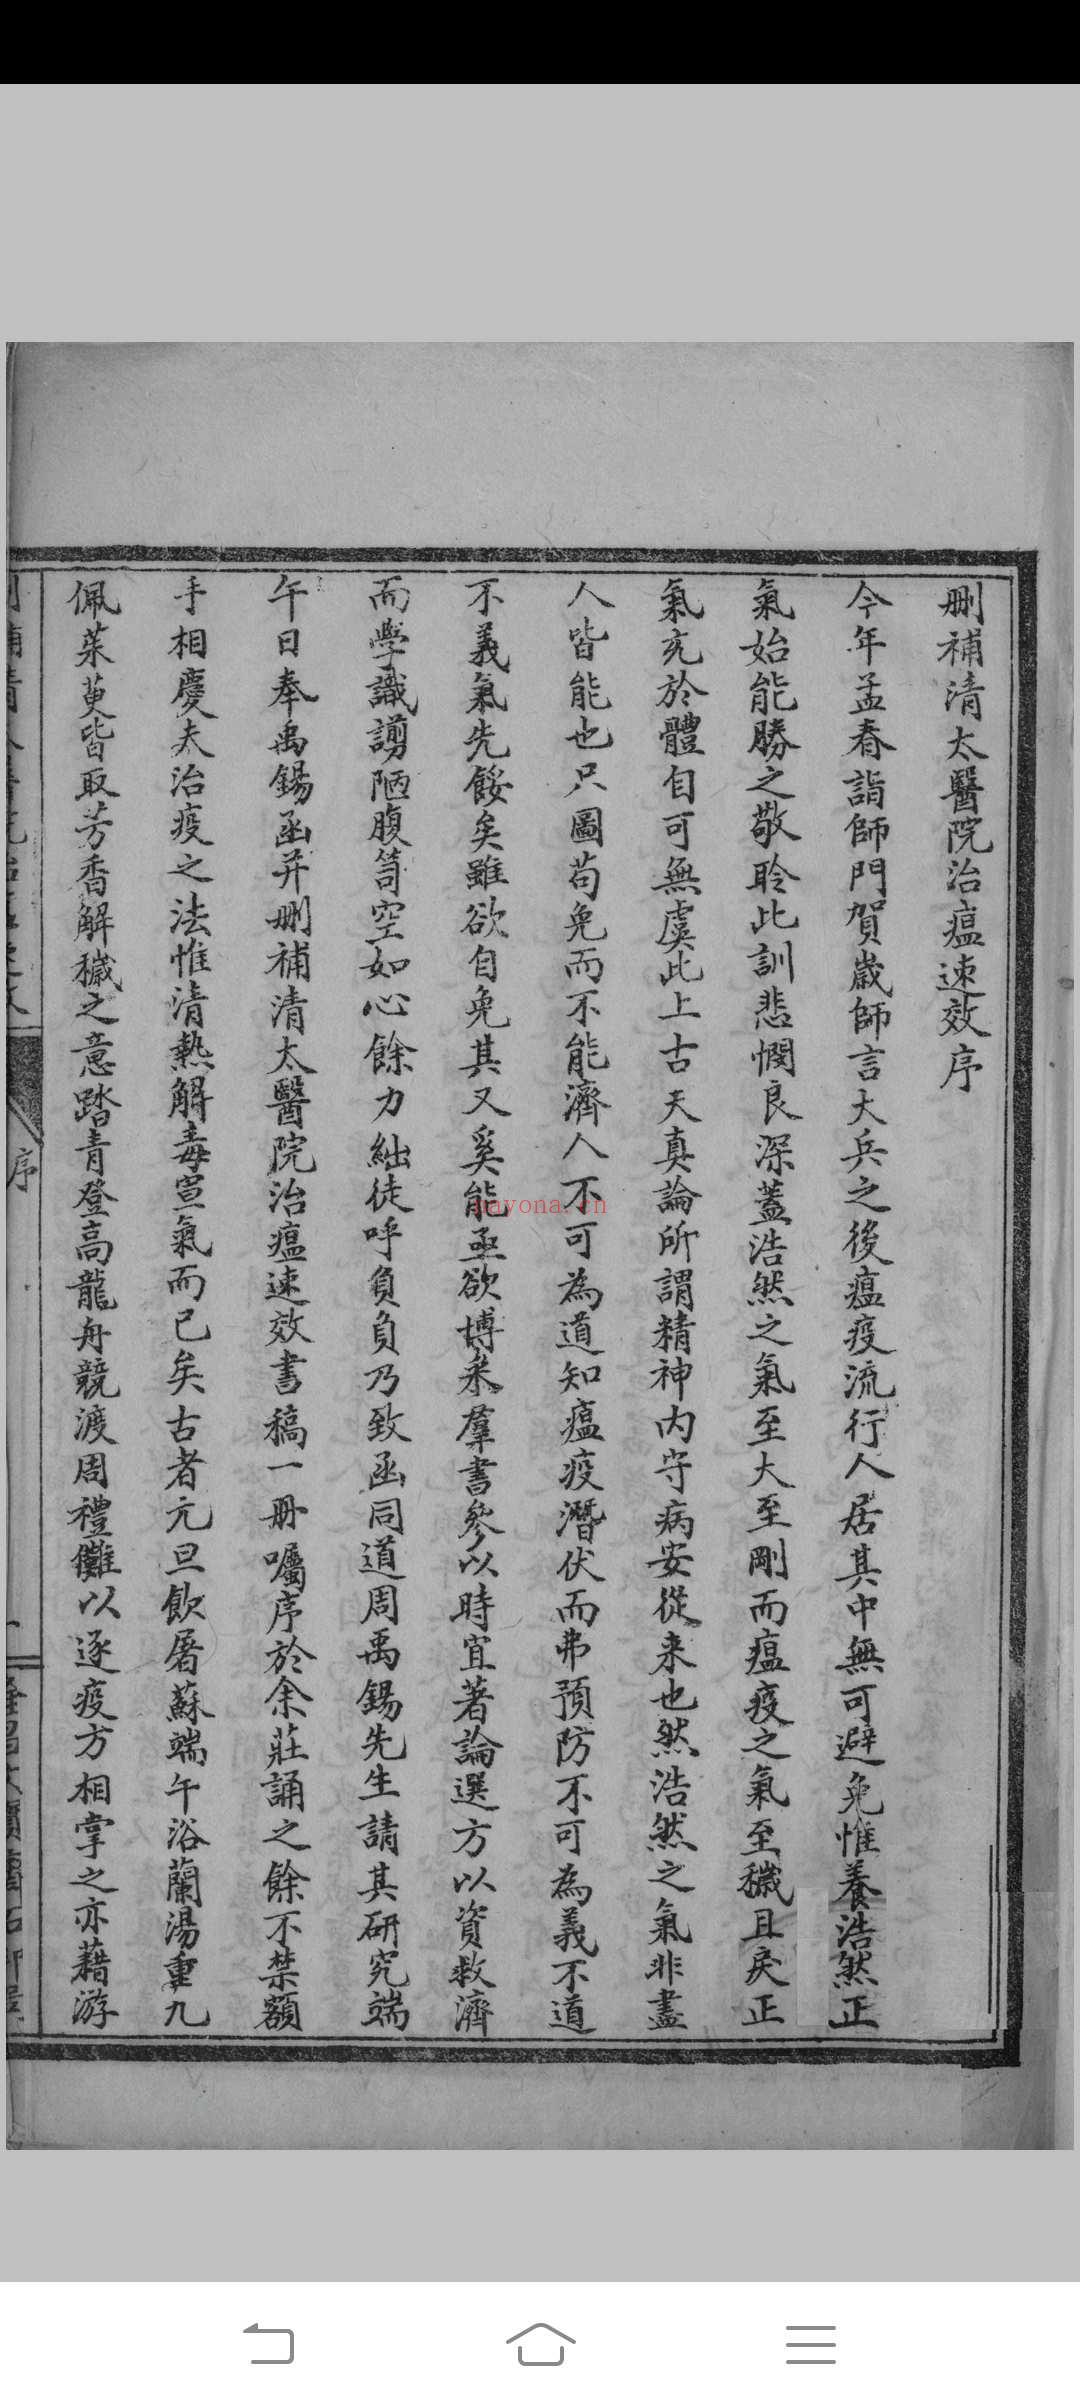 刪補清太醫院治瘟速效序
今年孟春詣師門賀歲師言大兵之後瘟疫流行人居其中無可避免惟養浩然正
氣始能勝之敬聆此訓悲憫良深蓋浩然之氣至大至剛而瘟疫之氣至穢且戾正
氣充於體自可無虞此上古天真論所謂精神內守病安從来也然浩然之氣非盡
人皆能也只圖苟免而不能濟人不可為道知瘟疫潛伏而弗預防不可為義不道
不義氣先餒矣雖欲自免其又奚能亟欲博采羣書參以時宜著論選方以資救濟
而學識謭陋腹笥空如心餘力絀徒呼負負乃致函同道周禹錫先生請其研究端
午日奉禹錫函并刪補清太醫院治瘟速效書稿一冊囑序於余莊誦之餘不禁額
手相慶夫治疫之法惟清熱解毒宣氣而已矣古者元旦飲屠蘇端午浴蘭湯重九
佩茱萸皆取芳香解穢之意踏青登高龍舟競渡周禮儺以逐疫方相掌之亦藉游
序
nayona.cn